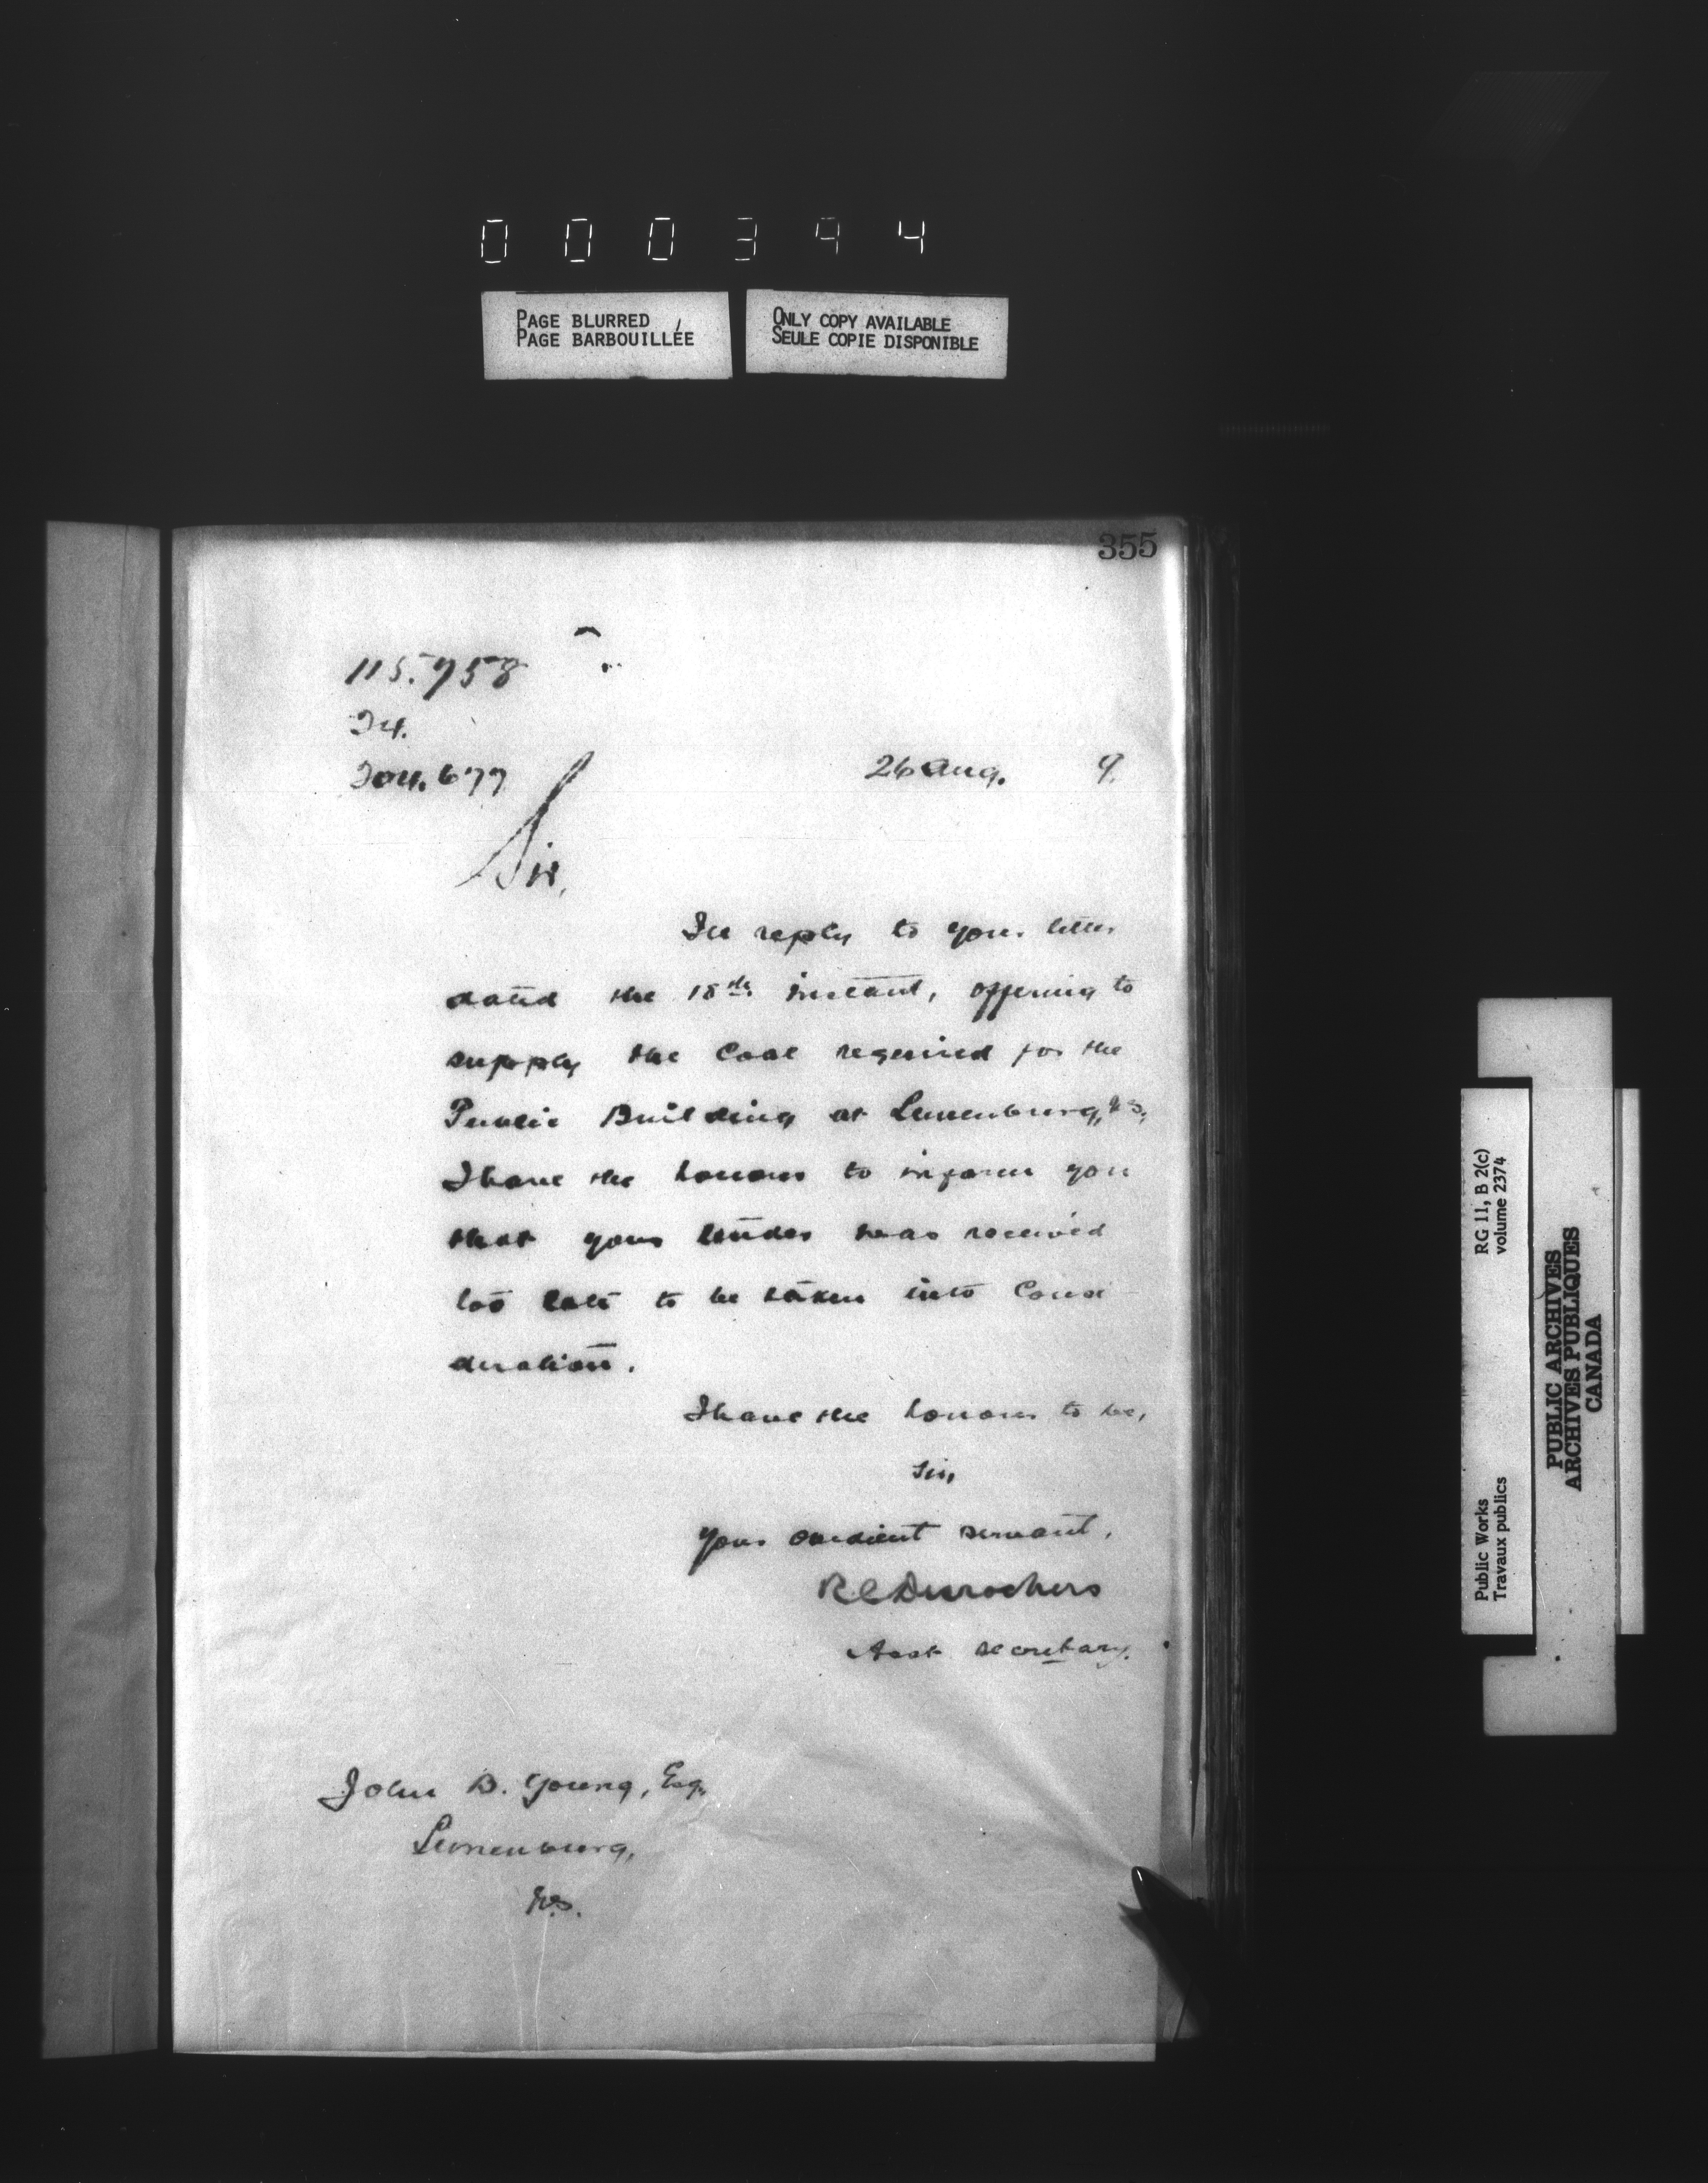 000394
PAGE BLURRED
PAGE BARBOUILLÉE
ONLY COPY AVAILABLE
SEULE COPIE DISPONIBLE
355
115.958
204.677
26 Aug. 9.
Sir,
In reply to your letter
dated the 18th. instant, offering to
supply the Coal required for the
Public Building at Lunenburg, N.S.,
I have the honour to inform you
that your tender was received
too late to be taken into Consi
deration.
I have the honour to be,
Sir,
Your obedient servant,
R C Desrochers
Asst secretary.
John B. Young, Esq.
Lunenburg,
N.S.
Public Works
Travaux publics
RG 11, B 2(c)
volume 2374
PUBLIC ARCHIVES
ARCHIVES PUBLIQUES
CANADA